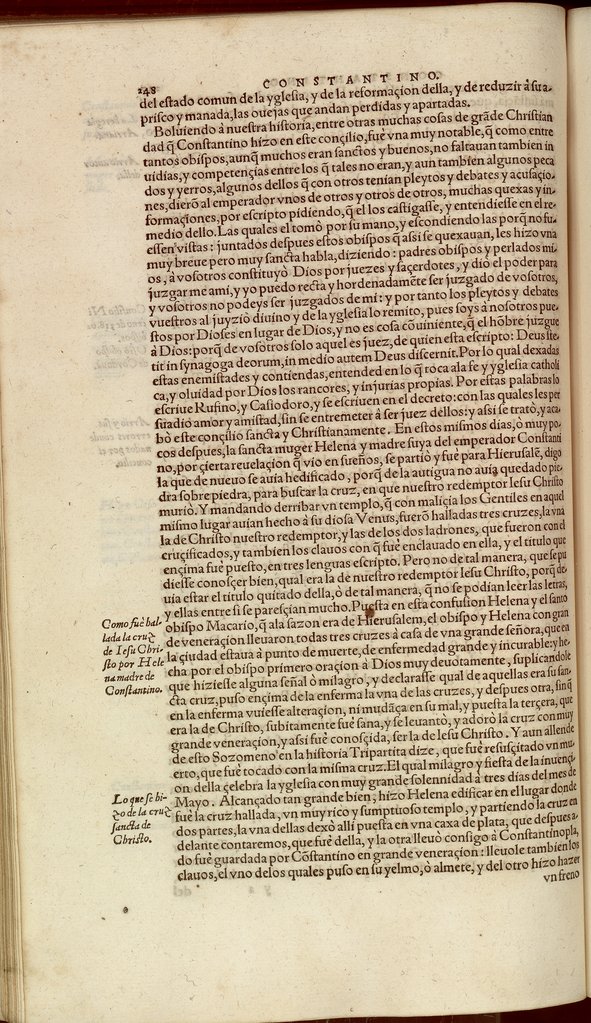 248
CONSTANTINO.
del estado comun de la yglesia, y de la reformaçion della, y de reduzir à su a-
prisco y manada, las ouejas que andan perdidas y apartadas.
Boluiendo à nuestra historia, entre otras muchas cosas de grãde Christian
dad q̃ Constantino hizo en este conçilio, fuè vna muy notable, q̃ como entre
tantos obispos, aunq̃ muchos eran sanctos y buenos, no faltauan tambien in
uidias, y competençias entre los q̃ tales no eran, y aun tambien algunos peca
dos y yerros, algunos dellos q̃ con otros tenian pleytos y debates y acusaçio-
nes, dierõ al emperador vnos de otros y otros de otros, muchas quexas y in-
formaçiones, por escripto pidiendo, q̃ el los castigasse, y entendiesse en el re-
medio dello. Las quales el tomò por su mano, y escondiendo las porq̃ no fu-
essen vistas: juntados despues estos obispos q̃ assi se quexauan, les hizo vna
muy breue pero muy sancta habla, diziendo: padres obispos y perlados mi-
os, à vosotros constituyò Dios por juezes y saçerdotes, y diò el poder para
juzgar me ami, y yo puedo recta y hordenadamẽte ser juzgado de vosotros,
y vosotros no podeys ser juzgados de mi: y por tanto los pleytos y debates
vuestros al juyzio diuino y de la yglesia lo remito, pues soys à nosotros pue-
stos por Dioses en lugar de Dios, y no es cosa cõuiniente, q̃ el hõbre juzgue
à Dios: porq̃ de vosotros solo aquel es juez, de quien esta escripto: Deus ste-
tit in synagoga deorum, in medio autem Deus discernit. Por lo qual dexadas
estas enemistades y contiendas, entended en lo q̃ toca ala fe y yglesia catholi
ca, y oluidad por Dios los rancores, y injurias propias. Por estas palabras lo
escriue Rufino, y Casiodoro, y se escriuen en el decreto: con las quales les per
suadiò amor y amistad, sin se entremeter à ser juez dellos: y assi se tratò, y aca-
bò este conçilio sancta y Christianamente. En estos mismos dias, ò muy po-
cos despues, la sancta muger Helena y madre suya del emperador Constanti
no, por çierta reuelaçion q̃ vio en sueños, se partiò y fuè para Hierusalẽ, digo
la que de nueuo se auia hedificado, porq̃ de la antigua no auia quedado pie-
dra sobre piedra, para buscar la cruz, en que nuestro redemptor Iesu Christo
muriò. Y mandando derribar vn templo, q̃ con maliçia los Gentiles en aquel
mismo lugar auian hecho à su diosa Venus, fuerõ halladas tres cruzes, la vna
la de Christo nuestro redemptor, y las de los dos ladrones, que fueron con el
cruçificados, y tambien los clauos con q̃ fuè enclauado en ella, y el titulo que
ençima fuè puesto, en tres lenguas escripto. Pero no de tal manera, que se pu
diesse conosçer bien, qual era la de nuestro redemptor Iesu Christo, porq̃ de-
uia estar el titulo quitado della, ò de tal manera, q̃ no se podian leer las letras,
y ellas entre si se paresçian mucho. Puesta en esta confusion Helena y el santo
obispo Macario, q̃ ala sazon era de Hierusalem, el obispo y Helena con gran
de veneraçion lleuaron todas tres cruzes à casa de vna grande señora, que en
la çiudad estaua à punto de muerte, de enfermedad grande y incurable: y he-
cha por el obispo primero oraçion à Dios muy deuotamente, suplicandole
que hiziesse alguna señal ò milagro, y declarasse qual de aquellas era su san-
cta cruz, puso ençima de la enferma la vna de las cruzes, y despues otra, sin q̃
en la enferma vuiesse alteraçion, ni mudãça en su mal, y puesta la terçera, que
era la de Christo, subitamente fuè sana, y se leuantò, y adorò la cruz con muy
grande veneraçion, y assi fuè conosçida, ser la de Iesu Christo. Y aun allende
de esto Sozomeno en la historia Tripartita dize, que fuè resusçitado vn mu-
erto, que fuè tocado con la misma cruz. El qual milagro y fiesta de la inuençi-
on della çelebra la yglesia con muy grande solennidad à tres dias del mes de
Mayo. Alcançado tan grande bien, hizo Helena edificar en el lugar donde
fuè la cruz hallada, vn muy rico y sumptuoso templo, y partiendo la cruz en
dos partes, la vna dellas dexò alli puesta en vna caxa de plata, que despues a-
delante contaremos, que fuè della, y la otra lleuò consigo à Constantinopla,
do fuè guardada por Cõstantino en grande veneraçion: lleuole tambien los
clauos, el vno delos quales puso en su yelmo, ò almete, y del otro hizo hazer
vn freno
Como fuè hal-
lada la cruz
de Iesu Chri-
sto por Hele
na madre de
Constantino.
Lo que se hi-
zo de la cruz
sancta de
Christo.